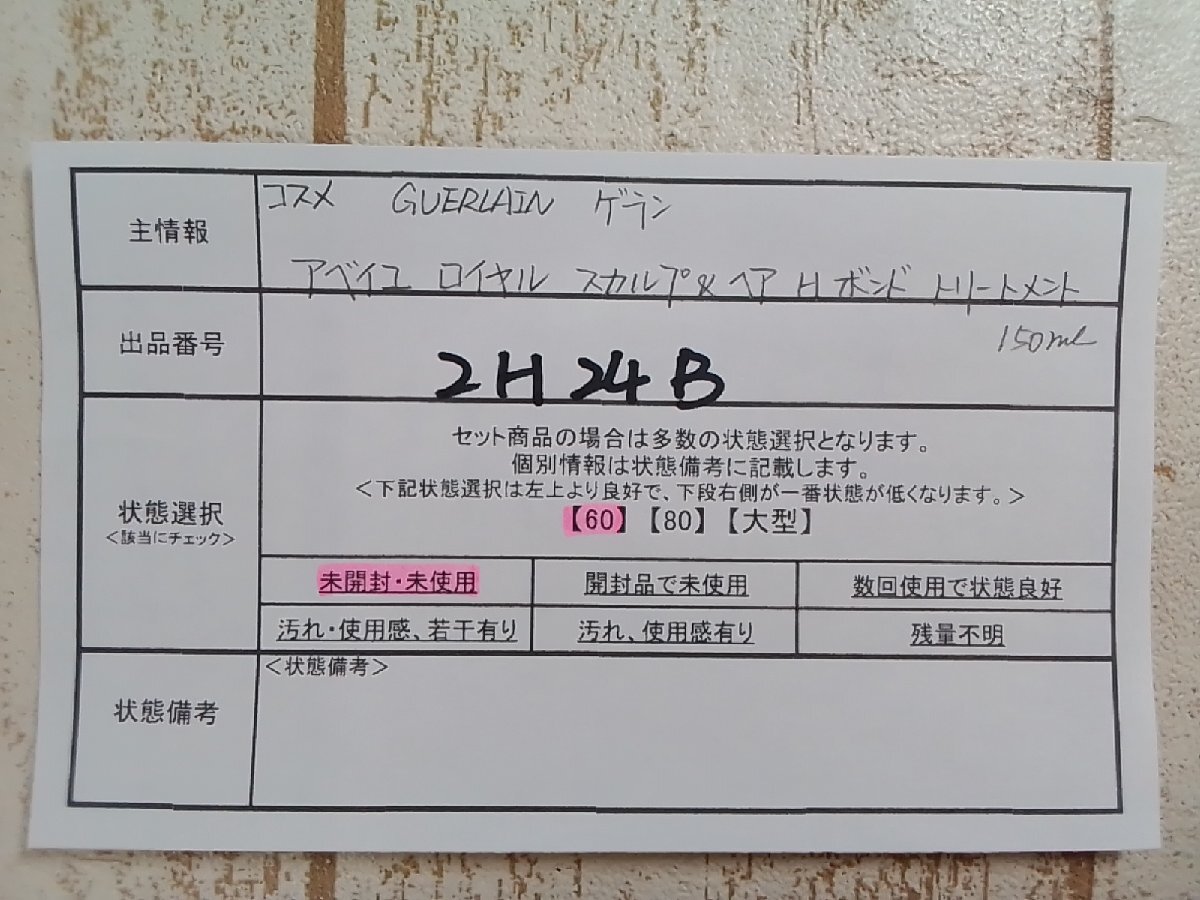 主情報
コスメ GUERLAIN ゲラン
アベイユ ロイヤル スカルプ&ヘア H ボンド トリートメント
出品番号
150ml
2H24B
状態選択
<該当にチェック>
セット商品の場合は多数の状態選択となります。
個別情報は状態備考に記載します。
<下記状態選択は左上より良好で、下段右側が一番状態が低くなります。>
【60】【80】【大型】
未開封・未使用 開封品で未使用 数回使用で状態良好
汚れ・使用感、若干有り 汚れ、使用感有り 残量不明
状態備考
<状態備考>